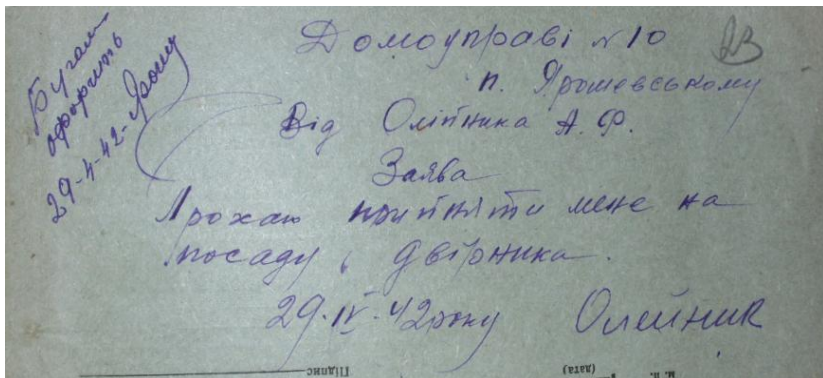 Бухгал.
оформить
29-4-42-
23
Домоуправі №10
п. Ярошевському
Від Олійника А. Ф.
Заява
Прохаю прийняти мене на
посаду, двірника.
29·IV·42 року Олейник
Підпис
(дата)
м. п.